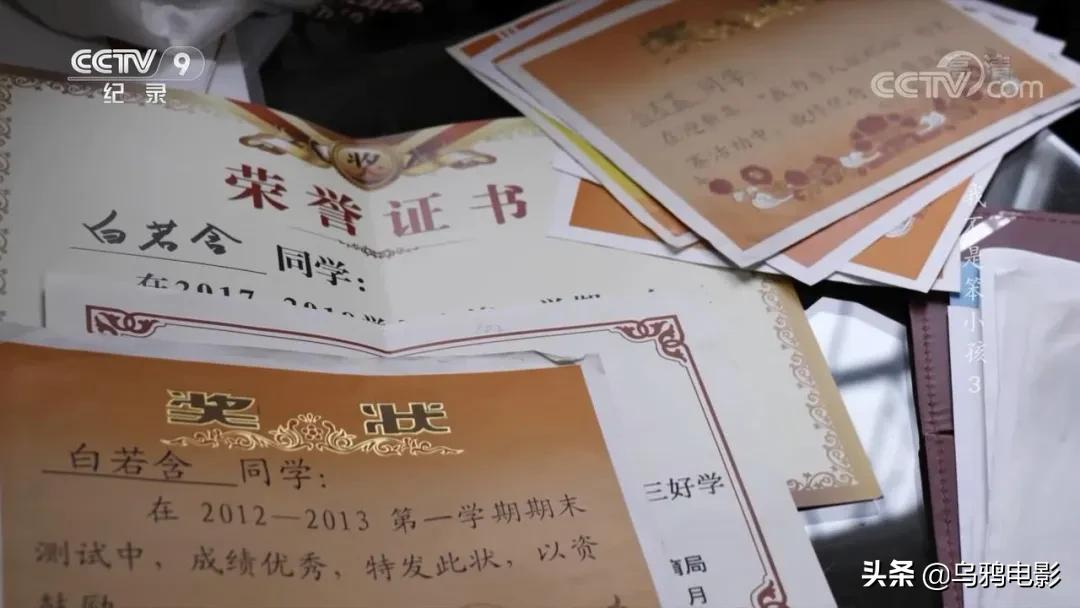 CCTV 9
纪录
CCTV 高清 com
同学
荣誉证书
白若含 同学:
三好学
奖状
白若含 同学:
在 2012—2013 第一学期期末
测试中,成绩优秀,特发此状,以资
鼓励
局
月
我不是笨小孩 3
头条 @乌鸦电影